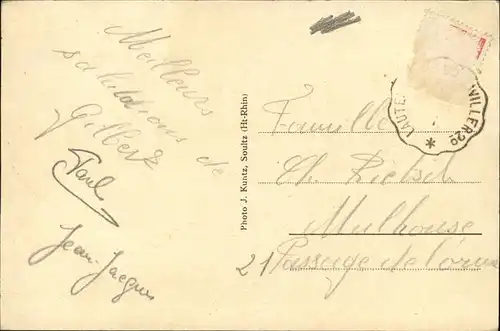 Meilleurs
salutations de
Gilbert
Paul
Jean-Jacques
Photo J. Kuntz, Soultz (Ht-Rhin)
LAUTE
LLER 2º
Famille
Ch.
Mulhouse
21 Passage de